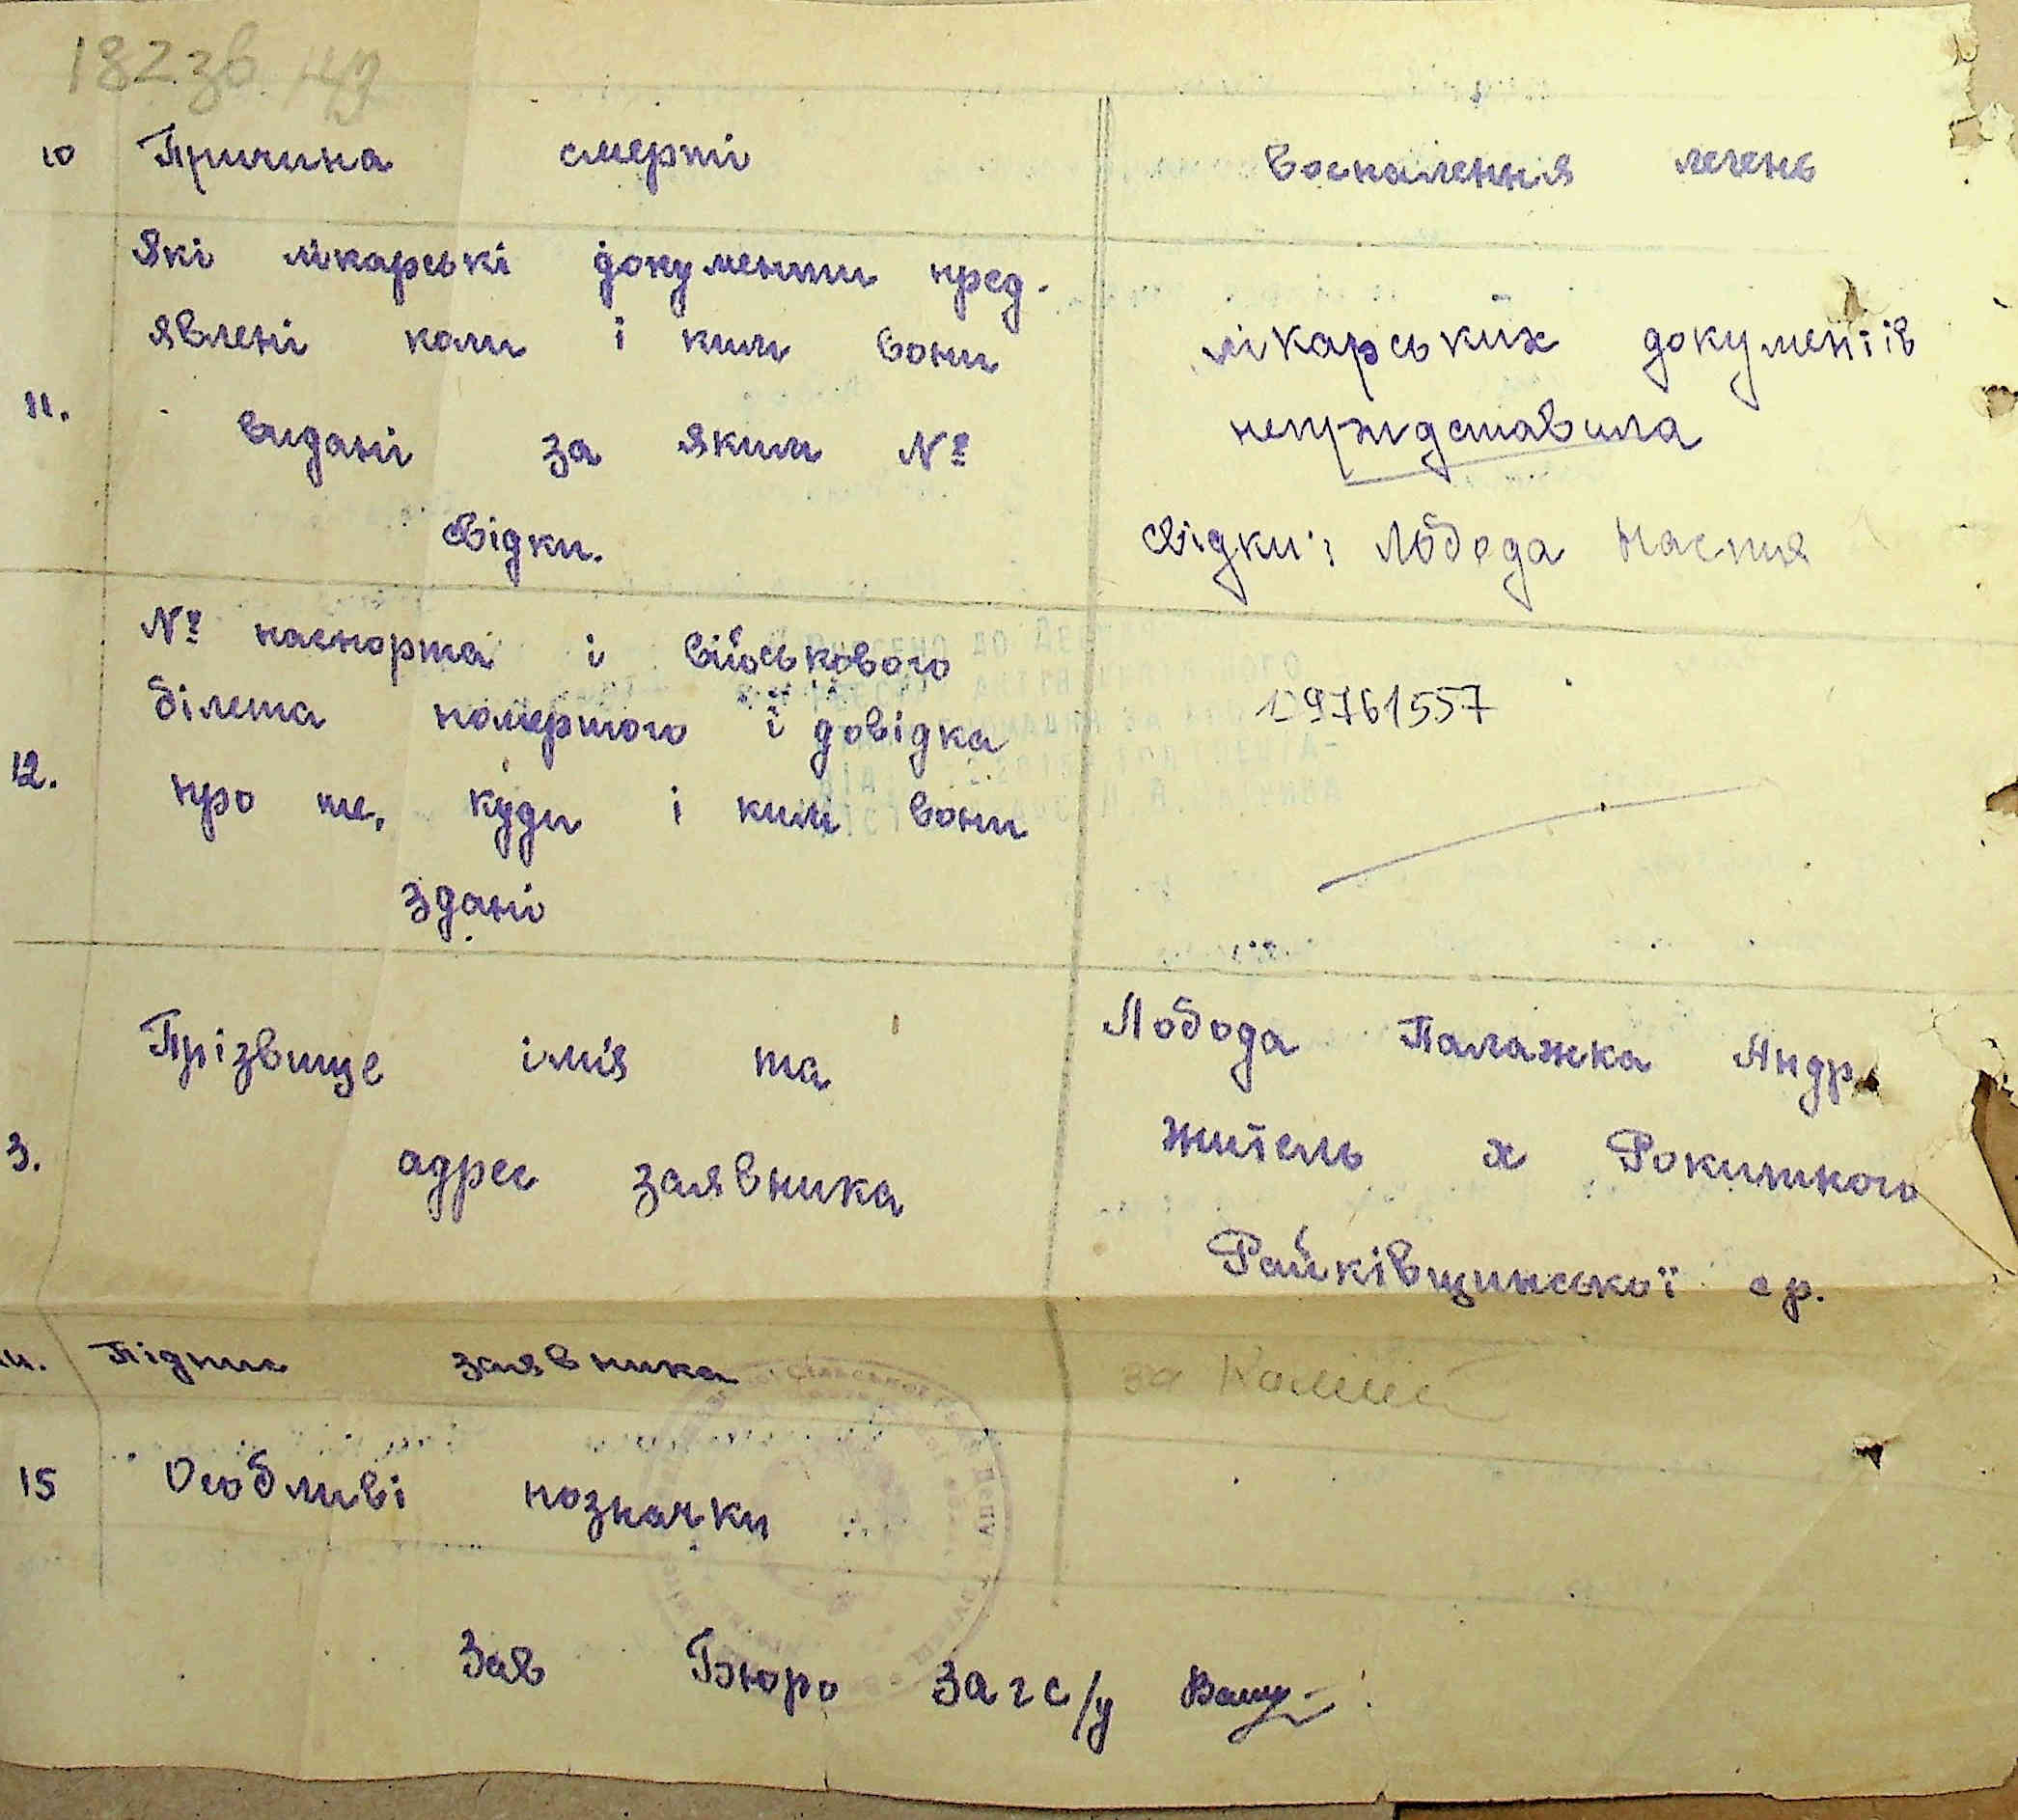 182 зв. 149
10 Причина смерті
Воспалення легень
Які лікарські документи пред-
явлені коли і ким вони
11. видані за яким №
свідки.
лікарських документів
непридставила
свідки: Лобода Настя
№ паспорта і військового
білета помершого і довідка
12. про те, куди і ким вони
здані
19761557
Прізвище імія та
3. адрес заявника
Лобода Палажка Андр
житель х Рокитного
Райківщинської ср.
14. Підпис заявника
за
15 Особливі позначки
Зав Бюро Загс/у